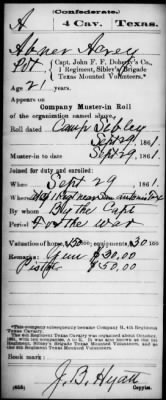 (Confederate.)
A 4 Cav. Texas.
Abner Acrey
Pvt, Capt. John F. F. Doherty's Co.,
1 Regiment, Sibley's Brigade
Texas Mounted Volunteers.*
Age 21 years.
Appears on
Company Muster-in Roll
of the organization named above,
Roll dated Camp Sibley
Sept 29, 1861.
Muster-in to date Sept 29, 1861.
Joined for duty and enrolled:
When Sept 29, 1861.
Where Antonio
By whom By the Capt
Period For the war
Valuation of horse, $150 equipments, $30
Remarks: Gun $20.00
Pistol $50.00
*This company subsequently became Company A, 4th Regiment Texas Cavalry.
The 4th Regiment Texas Cavalry was organized about October, 1861, with ten companies, A to K. It was also known as the 1st Regiment, Sibley's Brigade Texas Mounted Volunteers, and as the 4th Regiment Texas Mounted Volunteers.
Book mark:
J. B. Hyatt
Copyist.